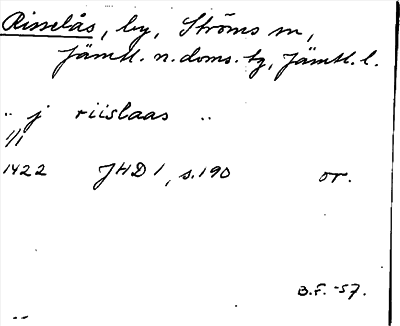 Risselås, by, Ströms sn,
Jämtl. n. doms. tg, Jämtl. l.
.. j riislaas ..
1/1
1422 JHD 1, s.190 or.
B.F. -57.